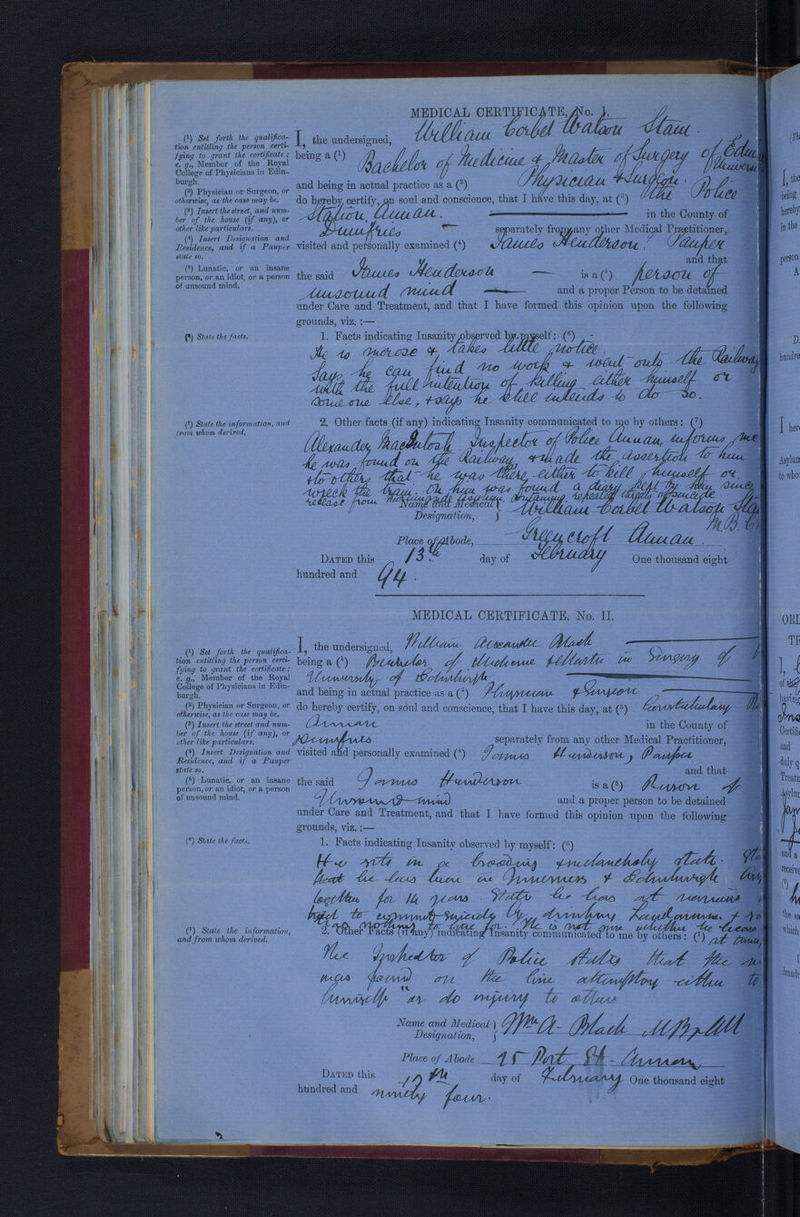 MEDICAL CERTIFICATE, No. I.
(¹) Set forth the qualifica-
tion entitling the person certi-
fying to grant the certificate;
e. g., Member of the Royal
College of Physicians in Edin-
burgh.
(²) Physician or Surgeon, or
otherwise, as the case may be.
(³) Insert the street, and num-
ber of the house (if any), or
other like particulars.
(⁴) Insert Designation and
Residence, and if a Pauper
state so.
(⁵) Lunatic, or an insane
person, or an idiot, or a person
of unsound mind.
(⁶) State the facts.
(⁷) State the information, and
from whom derived.
I, the undersigned, William Corbet Watson Stam
being a (¹) Bachelor of Medicine & Master of Surgery of
and being in actual practice as a (²) Physician & Surgeon
do hereby certify, on soul and conscience, that I have this day, at (³) the Police
Station, Annan. in the County of
Dumfries separately from any other Medical Practitioner,
visited and personally examined (⁴) James Henderson, Pauper
and that
the said James Henderson is a (⁵) person of
unsound mind and a proper Person to be detained
under Care and Treatment, and that I have formed this opinion upon the following
grounds, viz. :—
1. Facts indicating Insanity observed by myself: (⁶)
He is morose & takes little notice.
Says he can find no work & went onto the Railway
with the full intention of killing either himself or
some one else, & says he still intends to do so.
2. Other facts (if any) indicating Insanity communicated to me by others: (⁷)
Alexander MacIntosh Inspector of Police Annan, informs me
he was found on the Railway & made the assertion to him
& to others that he was there either to kill himself or
wreck the train. On him was found a diary kept by him since
release from asylum containing repeated threats of suicide
Name and Medical
Designation, William Corbet Watson
M.B. C
Place of Abode, Greencroft Annan.
DATED this 13th day of February One thousand eight
hundred and 94.
MEDICAL CERTIFICATE, No. II.
(¹) Set forth the qualifica-
tion entitling the person certi-
fying to grant the certificate;
e. g., Member of the Royal
College of Physicians in Edin-
burgh.
(²) Physician or Surgeon, or
otherwise, as the case may be.
(³) Insert the street and num-
ber of the house (if any), or
other like particulars.
(⁴) Insert Designation and
Residence, and if a Pauper
state so.
(⁵) Lunatic, or an insane
person, or an idiot, or a person
of unsound mind.
(⁶) State the facts.
(⁷) State the information,
and from whom derived.
I, the undersigned, William Alexander Black
being a (¹) Bachelor of Medicine & Master in Surgery of
University of Edinburgh
and being in actual practice as a (²) Physician & Surgeon
do hereby certify, on soul and conscience, that I have this day, at (³) Constabulary
Annan in the County of
Dumfries separately from any other Medical Practitioner,
visited and personally examined (⁴) James Henderson, Pauper
and that
the said James Henderson is a (⁵) Person of
Unsound mind and a proper person to be detained
under Care and Treatment, and that I have formed this opinion upon the following
grounds, viz. :—
1. Facts indicating Insanity observed by myself: (⁶)
He sits in a brooding & melancholy state.
that he has been in Inverness & Edinburgh
together for 14 years. States he has
tried to commit suicide by drinking Laudanum &
nothing to live for. He is not sure whether he
2. Other Facts (if any) indicating Insanity communicated to me by others: (⁷) at times
The Inspector of Police states that the
was found on the line attempting either to
himself or do injury to others
Name and Medical
Designation, Wm A. Black MB & CM
Place of Abode 25 Port St. Annan
DATED this 13th day of February One thousand eight
hundred and ninety four.